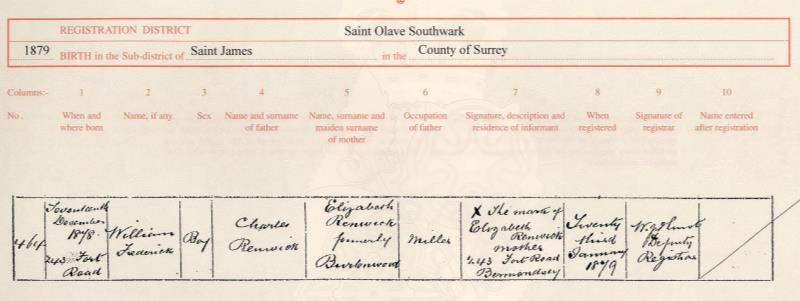 REGISTRATION DISTRICT Saint Olave Southwark
1879 BIRTH in the Sub-district of Saint James in the County of Surrey
Columns:- 1 2 3 4 5 6 7 8 9 10
No. When and where born Name, if any Sex Name and surname of father Name, surname and maiden surname of mother Occupation of father Signature, description and residence of informant When registered Signature of registrar Name entered after registration
464
Seventeenth
December
1878
243 Fort
Road
William
Frederick
Boy
Charles
Renwick
Elizabeth
Renwick
formerly
Burtonwood
Miller
X The mark of
Elizabeth
Renwick
mother
243 Fort Road
Bermondsey
Twenty
third
January
1879
Deputy
Registrar